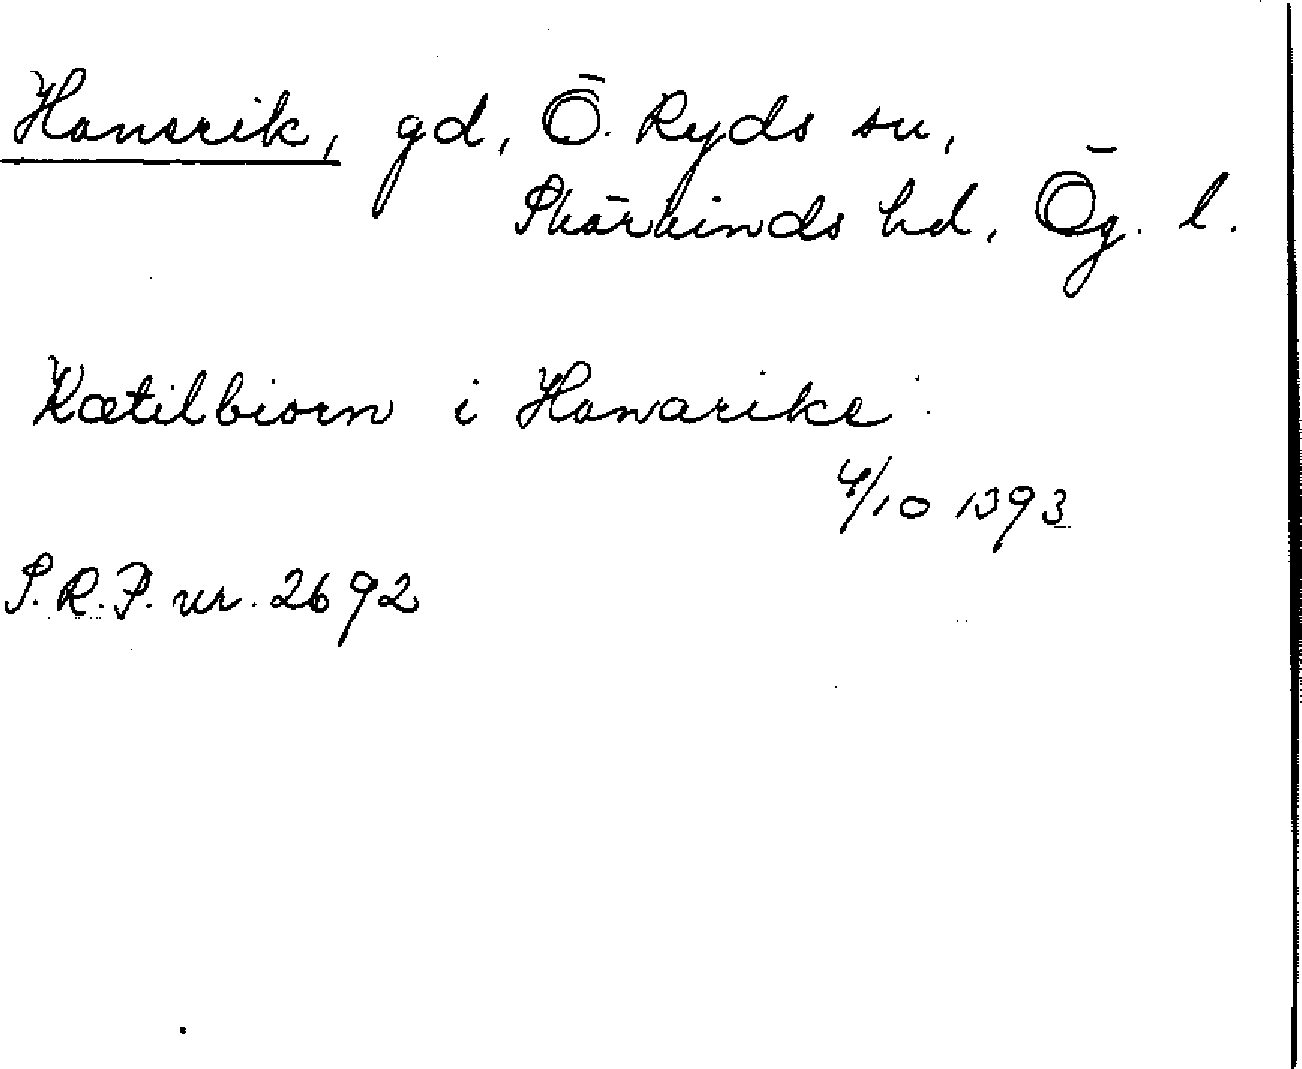 Hansrik, gd, Ö. Ryds sn,
Skärkinds hd, Ög. l.
Kætilbiorn i Hanarike
4/10 1393
S.R.P. nr. 2692